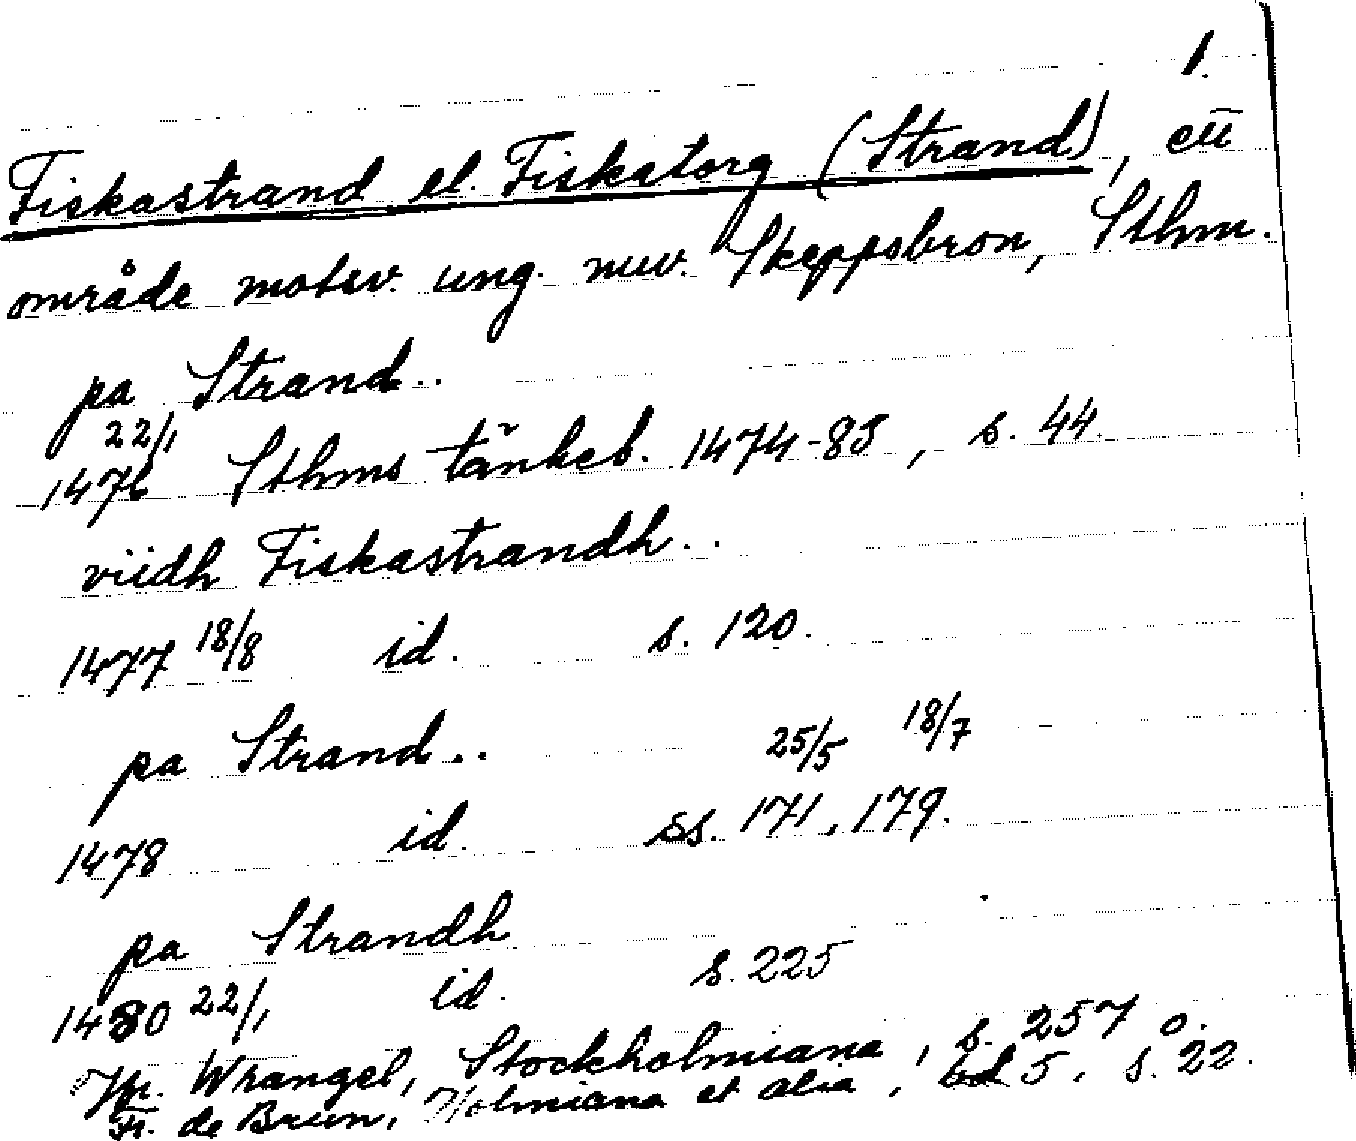 1.
Fiskastrand el. Fiskatorg (Strand), ett
område motsv. ung. nuv. Skeppsbron, Sthm.
pa Strand..
22/1
1476 Sthms tänkeb. 1474-83, s. 44.
viidh Fiskastrandh..
1477 18/8 id. s. 120.
pa Strand.. 25/5 18/7
1478 id. ss. 171, 179.
pa Strandh
1480 22/1 id. s. 225
Wrangel, Stockholmiana, s. 257 o.
Fr. de Brun, Holmiana et alia, bd 5, s. 22.